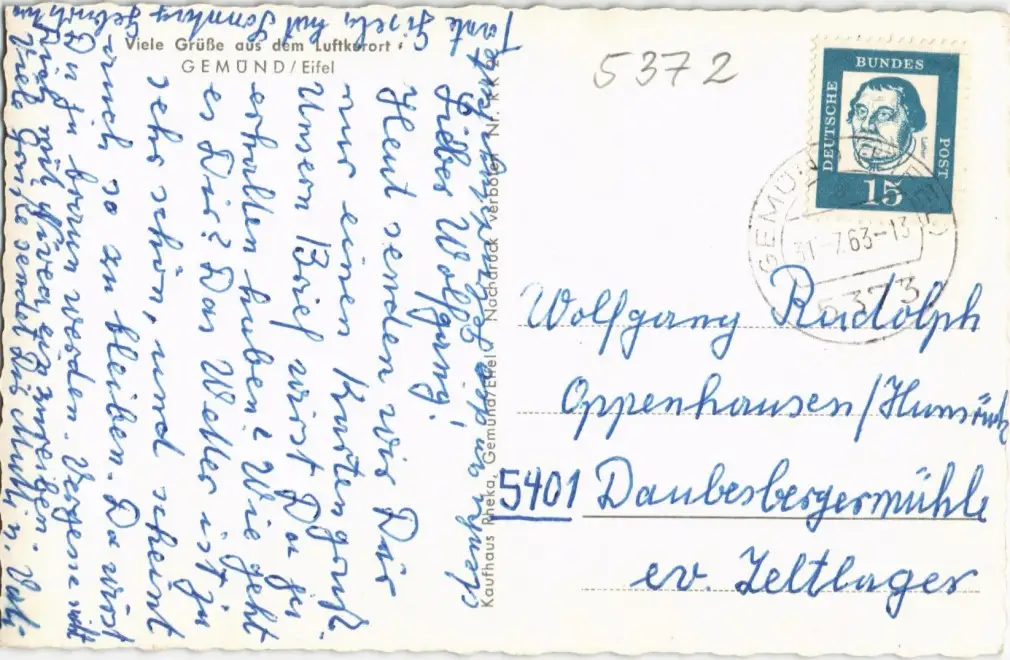 Viele Grüße aus dem Luftkurort
GEMÜND/Eifel
5372
DEUTSCHE
BUNDES
POST
15
GEMÜND
31.-7.63-13
5373
Wolfgang Rudolph
Oppenhausen/Hunsrück
5401 Daubesbergermühle
ev. Zeltlager
Kaufhaus Rheka, Gemünd/Eifel Nachdruck verboten Nr. KK
Lieber Wolfgang!
Heut senden wir Dir
nur einen Kartengruß.
Unsern Brief wirst Du ja
erhalten haben? Wie geht
es Dir? Das Wetter ist ja
sehr schön, und scheint
auch so zu bleiben. Da wirst
Du ja braun werden. Vergesse nicht
Dich mit Nivea einzureiben.
Viele Grüße sendet Dir Mutti u. Vati
Tante Gisela hat Sonntag Geburtstag